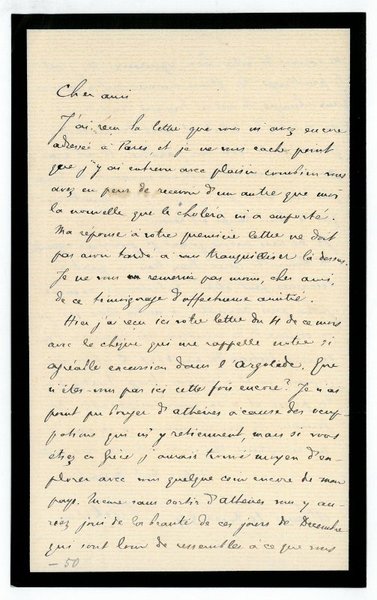 Cher ami
J'ai reçu la lettre que vous m'avez encore
adressée à Paris et je ne vous cache point
que j'y ai entrevu avec plaisir combien vous
avez eu peur de recevoir d'un autre que moi
la nouvelle que le choléra m'a emporté.
Ma réponse à votre première lettre ne doit
pas avoir tardé à vous tranquilliser là dessus.
Je ne vous remercie pas moins, cher ami,
de ce témoignage d'affectueuse amitié.
Hier j'ai reçu ici votre lettre du 11 de ce mois
avec le chèque qui me rappelle notre si
agréable excursion dans l'Argolide. Que
n'êtes-vous pas ici cette fois encore? Je n'ai
point pu bouger d'Athènes à cause des occup-
pations qui m'y retiennent, mais si vous
étiez en Grèce j'aurais trouvé moyen d'ex-
plorer avec vous quelque coin encore de mon
pays. Même sans sortir d'Athènes vous y au-
riez joui de la beauté de ces jours de Décembre
qui sont loin de ressembler à ce que vous
- 50